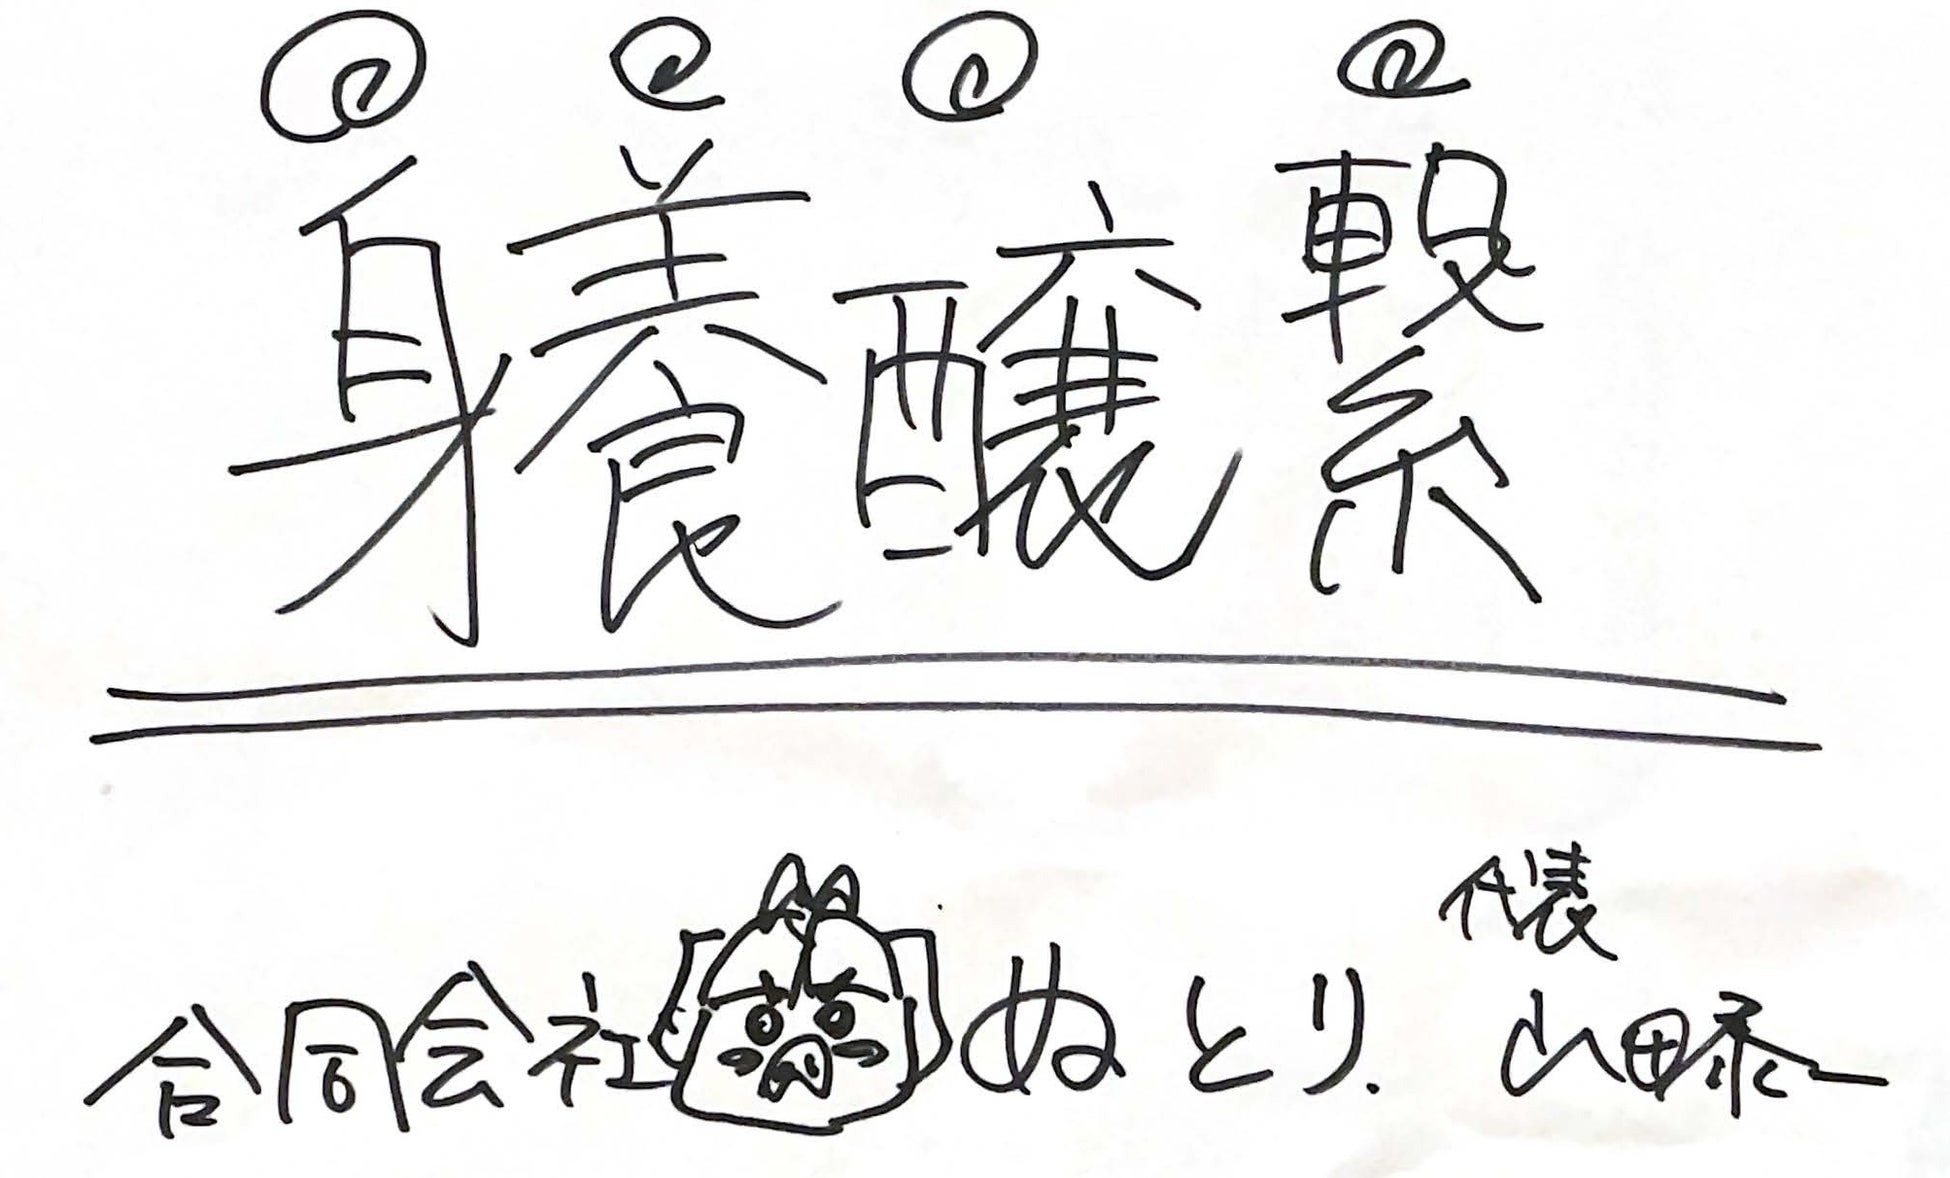 @ @ @ @
身養醸繋
代表
合同会社ぬとり. 山田泰一